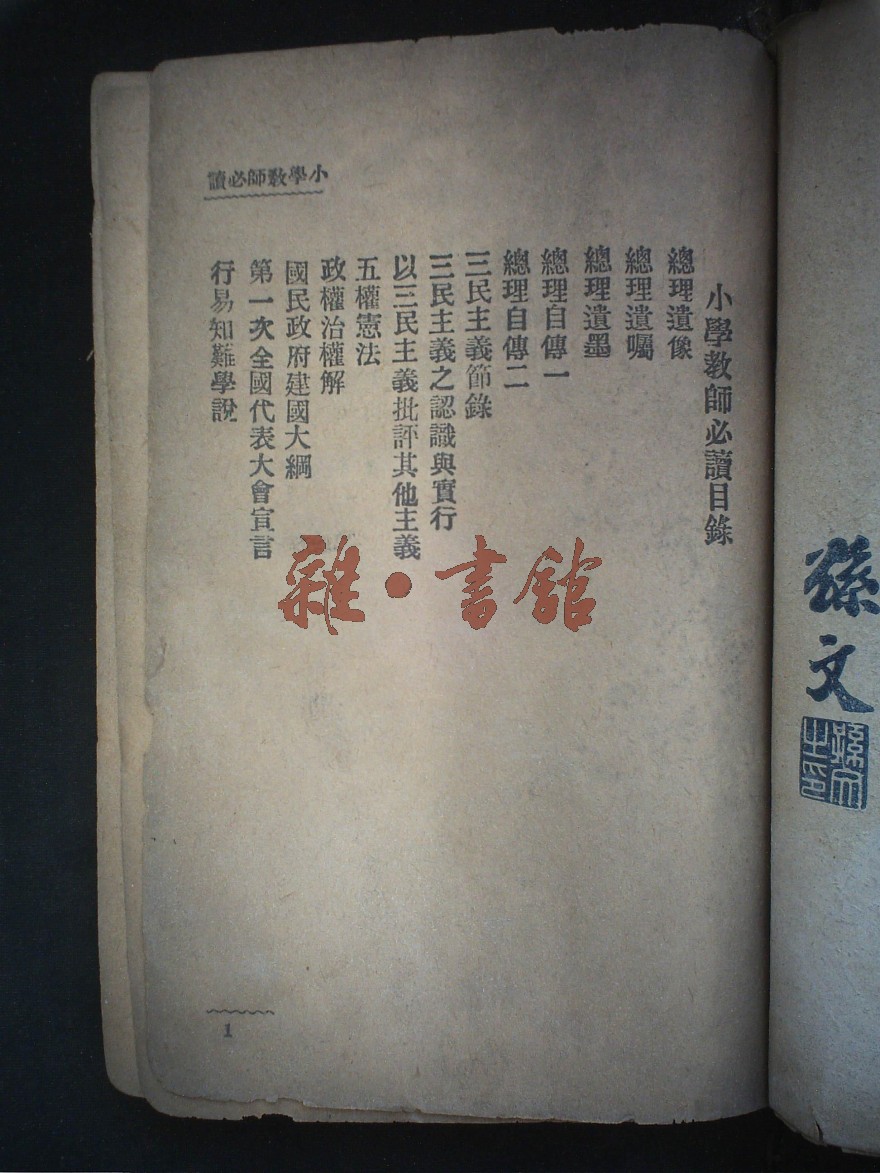 小學教師必讀
小學教師必讀目錄
總理遺像
總理遺囑
總理遺墨
總理自傳一
總理自傳二
三民主義節錄
三民主義之認識與實行
以三民主義批評其他主義
五權憲法
政權治權解
國民政府建國大綱
第一次全國代表大會宣言
行易知難學說
1
雜·書館
孫文
孫文之印